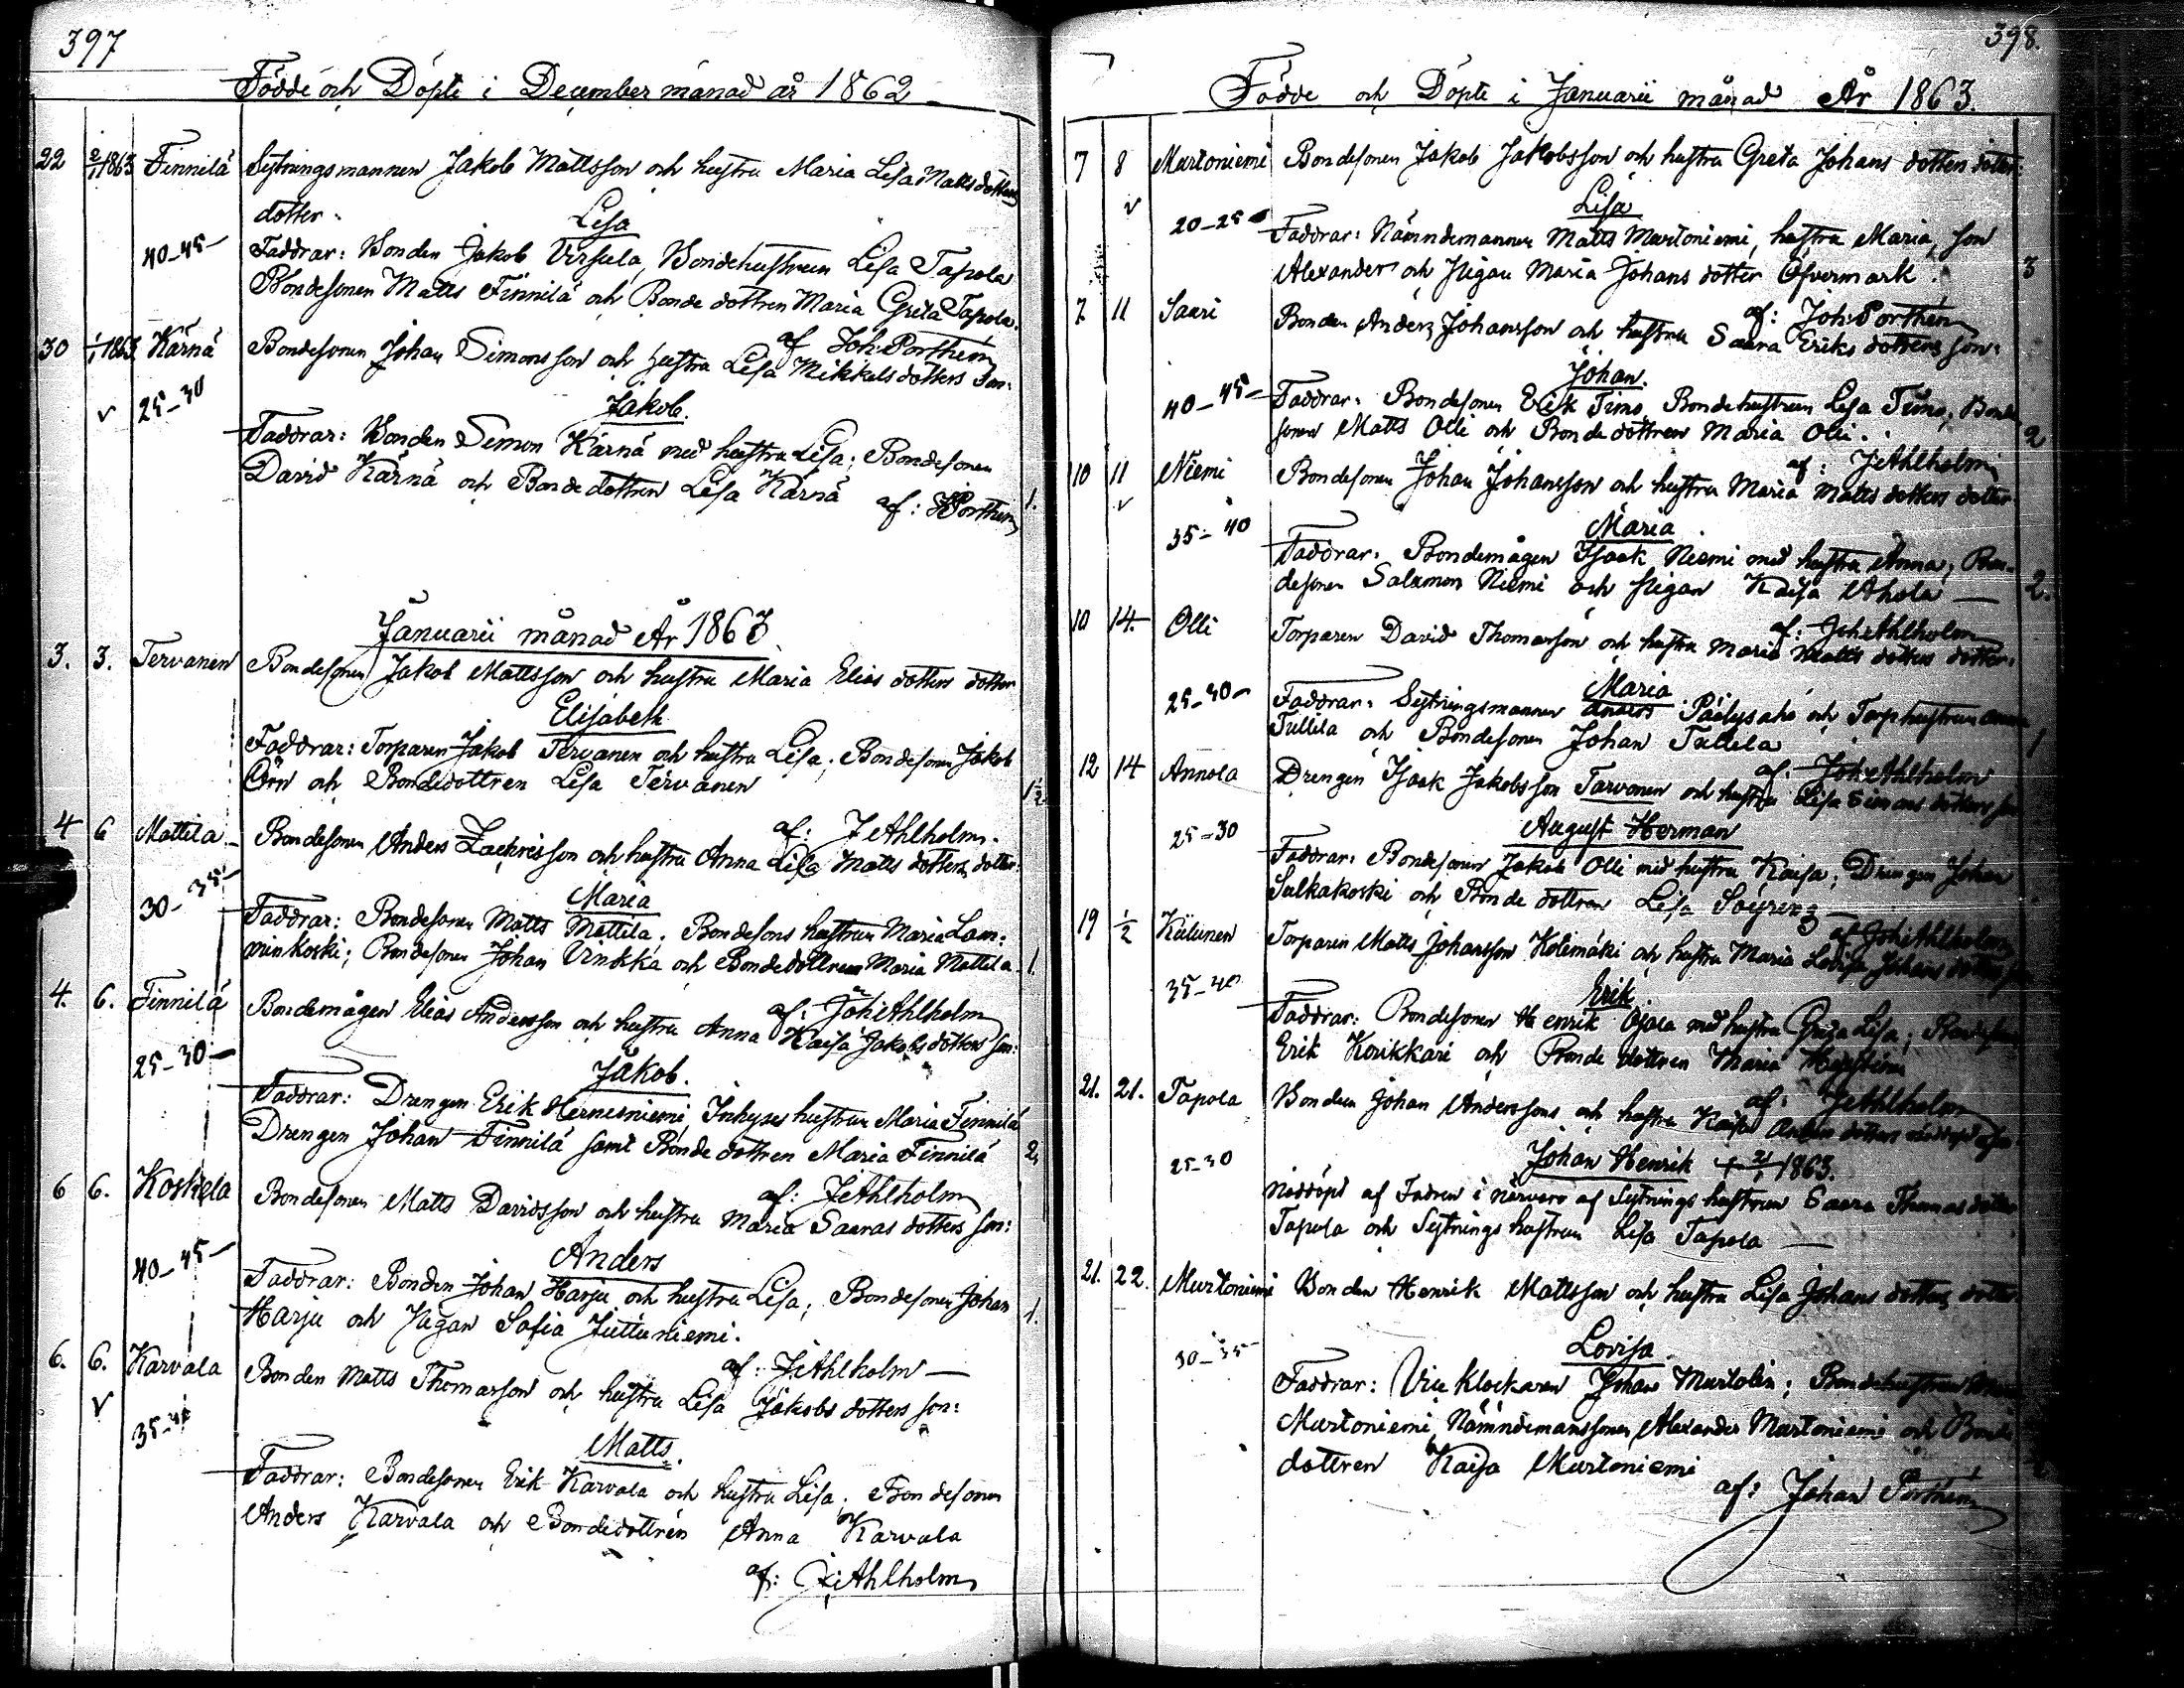 397
Födde och Döpte i December månad år 1862
22 2/1 1863 Finnilä Sytningsmannen Jakob Mattsson och hustru Maria Lisa Matts dotters
dotter.
Lisa
40–45 Faddrar: Bonden Jakob Virsula, Bondehustrun Lisa Tapola
Bondesonen Matts Finnilä och Bonde dottren Maria Greta Tapola.
af Joh: Porthén
30 1/1 1863 Kärnä Bondesonen Johan Simonsson och hustru Lisa Mikkels dotters son:
25–30 Jakob.
Faddrar: Bonden Simon Kärnä med hustru Lisa; Bondesonen
David Kärnä och Bondedottren Lisa Kärnä 1.
af: Porthén
Januarii månad År 1863.
3. 3. Tervanen Bondesonen Jakob Mattsson och hustru Maria Elias dotters dotter
Elisabeth
Faddrar: Torparen Jakob Tervanen och hustru Lisa; Bondesonen Jakob
Örn och Bondedottren Lisa Tervanen 1½
af: J Ahlholm.
4 6 Mattila Bondesonen Anders Zachrisson och hustru Anna Lisa Matts dotters dotter
30–35 Maria
Faddrar: Bondesonen Matts Mattila; Bondesons hustrun Maria Lam:
minkoski; Bondesonen Johan Vinkka och Bondedottren Maria Mattila 1.
af: Joh: Ahlholm
4. 6. Finnilä Bondemågen Elias Andersson och hustru Anna Kaisa Jakobs dotters son:
25–30 Jakob.
Faddrar: Drengen Erik Hernesniemi, Inhyses hustrun Maria Finnilä
Drengen Johan Finnilä samt Bonde dottren Maria Finnilä 2.
af: J Ahlholm
6 6. Koskela Bondesonen Matts Davidsson och hustru Maria Saaras dotters son:
40–45 Anders
Faddrar: Bonden Johan Harju och hustru Lisa; Bondesonen Johan
Harju och Pigan Sofia Juttuniemi. 1.
af: J Ahlholm
6. 6. Karvala Bonden Matts Thomasson och hustru Lisa Jakobs dotters son:
35–40
Matts.
Faddrar: Bondesonen Erik Karvala och hustru Lisa; Bondesonen
Anders Karvala och Bondedottren Anna Karvala
af: J: Ahlholm
398.
Födde och Döpte i Januarii månad År 1863.
7 8 Murtoniemi Bondesonen Jakob Jakobsson och hustru Greta Johans dotters dotter:
20–25 Lisa
Faddrar: Nämndemannen Matts Murtoniemi, hustru Maria, son
Alexander och Pigan Maria Johans dotter Öfvermark. 3
af: Joh: Porthén
7. 11 Saari Bonden Anders Johansson och hustru Saara Eriks dotters son:
Johan.
40–45 Faddrar: Bondesonen Erik Timo, Bondehustrun Lisa Timo; Bonde
sonen Matts Olli och Bonde dottren Maria Olli. 2
af: J Ahlholm
10 11 Niemi Bondesonen Johan Johansson och hustru Maria Matts dotters dotter
35–40 Maria
Faddrar: Bondemågen Isaak Niemi med hustru Anna; Bon-
desonen Salamon Niemi och Pigan Kaisa Ahola 2.
af: Joh: Ahlholm
10 14. Olli Torparen David Thomasson och hustru Maria Matts dotters dotter:
Maria
25–30 Faddrar: Sytningsmannen Anders Päälysaho och Torphustrun Anna
Tullila och Bondesonen Johan Tullila 1
af. Joh: Ahlholm
12 14 Annola Drengen Isaak Jakobsson Tarvonen och hustru Lisa Simons dotters son
25–30 August Herman
Faddrar: Bondesonen Jakob Olli med hustru Kaisa; Drengen Johan
Salkakoski och Bonde dottren Lisa Söyring
af Joh: Ahlholm
19 1/2 Kiilunen Torparen Matts Johansson Kolimäki och hustru Maria Lovisa Johans dotters
35–40 Erik.
Faddrar: Bondesonen Henrik Ojala med hustru Greta Lisa;
Erik Korikkari och Bonde dottren Maria
af: J Ahlholm
21. 21. Tapola Bonden Johan Anderssons och hustru Kaisa dotters nöddöpt son:
25–30 Johan Henrik † 21/1 1863.
Nöddöpt af Fadren i närvaro af Sytnings hustrun Saara Thomas dotter
Tapola och Sytnings hustrun Lisa Tapola
21. 22. Murtoniemi Bonden Henrik Mattsson och hustru Lisa Johans dotters dotter
30–35 Lovisa.
Faddrar: Vice klockaren Johan Murtolin; Bondehustrun
Murtoniemi, Nämndemanssonen Alexander Murtoniemi och Bonde
dottren Kaisa Murtoniemi
af: Johan Porthén